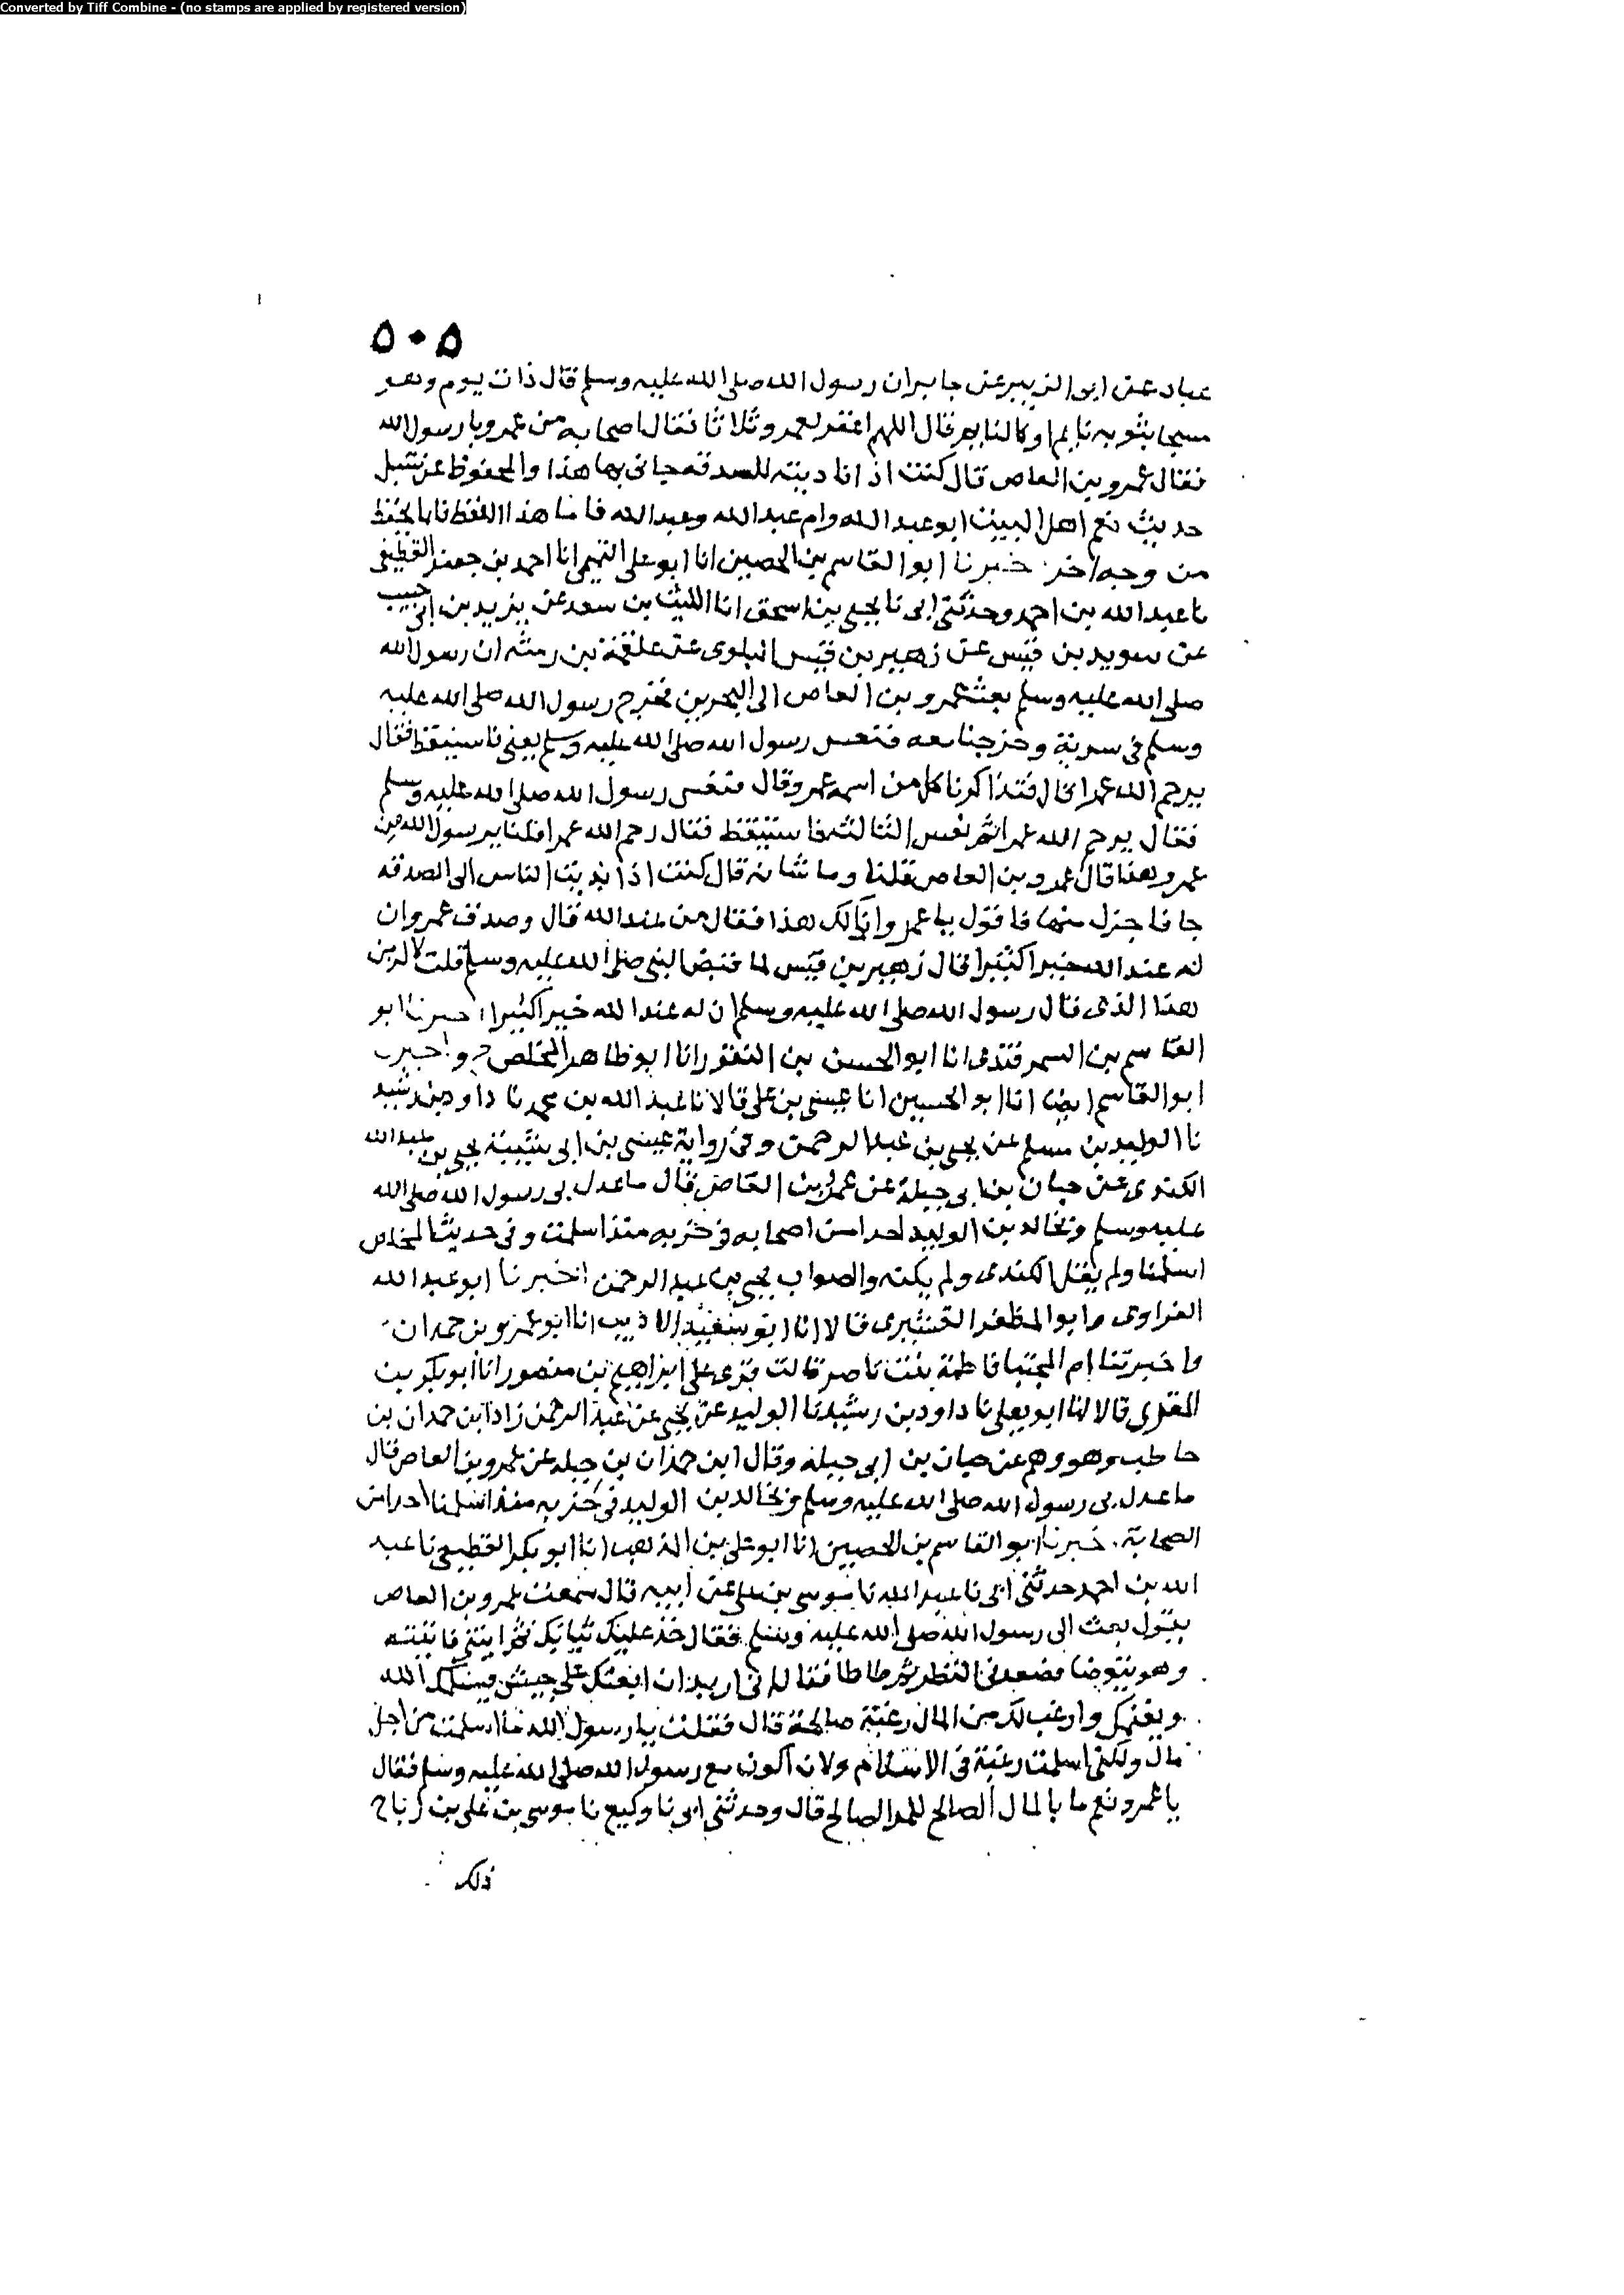 Converted by Tiff Combine - (no stamps are applied by registered version)
٥٠٥
عباد عن ابو الزبير عن جابر ان رسول الله صلى الله عليه وسلم قال ذات يوم وهو
مسجا بثوبه نايم او كالنايم قال اللهم اغفر لعمرو ثلاثا فقال اصحابه من عمرو يا رسول الله
فقال عمرو بن العاص قال كنت اذا ناديته للصدقه جانى بها هذا والمحفوظ عن
حديث نعم اهل البيت ابو عبد الله وام عبد الله وعبد الله فاما هذا اللفظ فانما يحفظ
من وجه اخر خبرنا ابو القاسم بن الحصين انا ابو على التميمى انا احمد بن جعفر القطيعى
نا عبد الله بن احمد وحدثنى ابى نا يحيى بن اسحق انا الليث بن سعد عن يزيد بن ابى حبيب
عن سويد بن قيس عن زهير بن قيس البلوى عن علقمة بن رمثه ان رسول الله
صلى الله عليه وسلم بعث عمرو بن العاص الى البحرين فخرج رسول الله صلى الله عليه
وسلم فى سرية وخرجنا معه فنعس رسول الله صلى الله عليه وسلم يعنى فاستيقظ فقال
يرحم الله عمرا قال فتذاكرنا كل من اسمه عمرو قال فنعس رسول الله صلى الله عليه وسلم
فقال يرحم الله عمرا ثم نعس الثالثه فاستيقظ فقال رحم الله عمرا فقلنا يرسول الله من
عمرو هذا قال عمرو بن العاص فقلنا وما شانه قال كنت اذا ندبت الناس الى الصدقه
جا فاجزل منها فاقول يا عمرو انى لك هذا فقال من عند الله قال وصدق عمرو ان
له عند الله خيرا كثيرا قال زهير بن قيس لما قبض النبى صلى الله عليه وسلم قلت لالزمن
هذا الذى قال رسول الله صلى الله عليه وسلم ان له عند الله خيرا كثيرا اخبرنا ابو
القاسم بن السمرقندى انا ابو الحسين بن النقور انا ابو طاهر المخلص ح واخبرنا
ابو القاسم ايضا انا ابو الحسين انا عيسى بن على قالا نا عبد الله بن محمد نا داود بن رشيد
نا الوليد بن مسلم عن يحيى بن عبد الرحمن وفى رواية عيسى بن ابى يحيى بن عبد الله
الكندى عن حبان بن ابى جبلة عن عمرو بن العاص قال ما عدل بى رسول الله صلى الله
عليه وسلم وبخالد بن الوليد احدا من اصحابه فى حربه منذ اسلمت وفى حديث المخلص
اسلمنا ولم يقل الكندى ولم يكنه والصواب يحيى بن عبد الرحمن اخبرنا ابو عبد الله
الفراوى وابو المظفر القشيرى قالا انا ابو سعيد الاديب انا ابو عمرو بن حمدان
واخبرتنا ام المجتبا فاطمة بنت ناصر قالت قرى على ابراهيم بن منصور انا ابو بكر بن
المقرى قالا انا ابو يعلى نا داود بن رشيد نا الوليد عن يحيى عن عبد الرحمن زاد ابن حمدان بن
حاطب وهو وهم عن حبان بن ابى جبيلة وقال ابن حمدان بن جبله عن عمرو بن العاص قال
ما عدل بى رسول الله صلى الله عليه وسلم وبخالد بن الوليد فى حربه منذ اسلمنا احدا من
الصحابة. خبرنا ابو القاسم بن الحصين انا ابو على بن المذهب انا ابو بكر القطيعى نا عبد
الله بن احمد حدثنى ابى نا عبد الله نا موسى بن على عن ابيه قال سمعت عمرو بن العاص
يقول بعث الى رسول الله صلى الله عليه وسلم فقال خذ عليك ثيابك ثم ايتنى فاتيته
وهو يتوضا فصعد فى النظر ثم طاطا فقال انى اريد ان ابعثك على جيش فيسلمك الله
ويغنمك وارغب لك من المال رغبة صالحة قال فقلت يا رسول الله ما اسلمت من اجل
مال ولكنى اسلمت رغبة فى الاسلام ولان اكون مع رسول الله صلى الله عليه وسلم فقال
يا عمرو نعم ما بالمال الصالح للمرا الصالح قال وحدثنى ابى نا وكيع نا موسى بن على بن رباح
ذلك